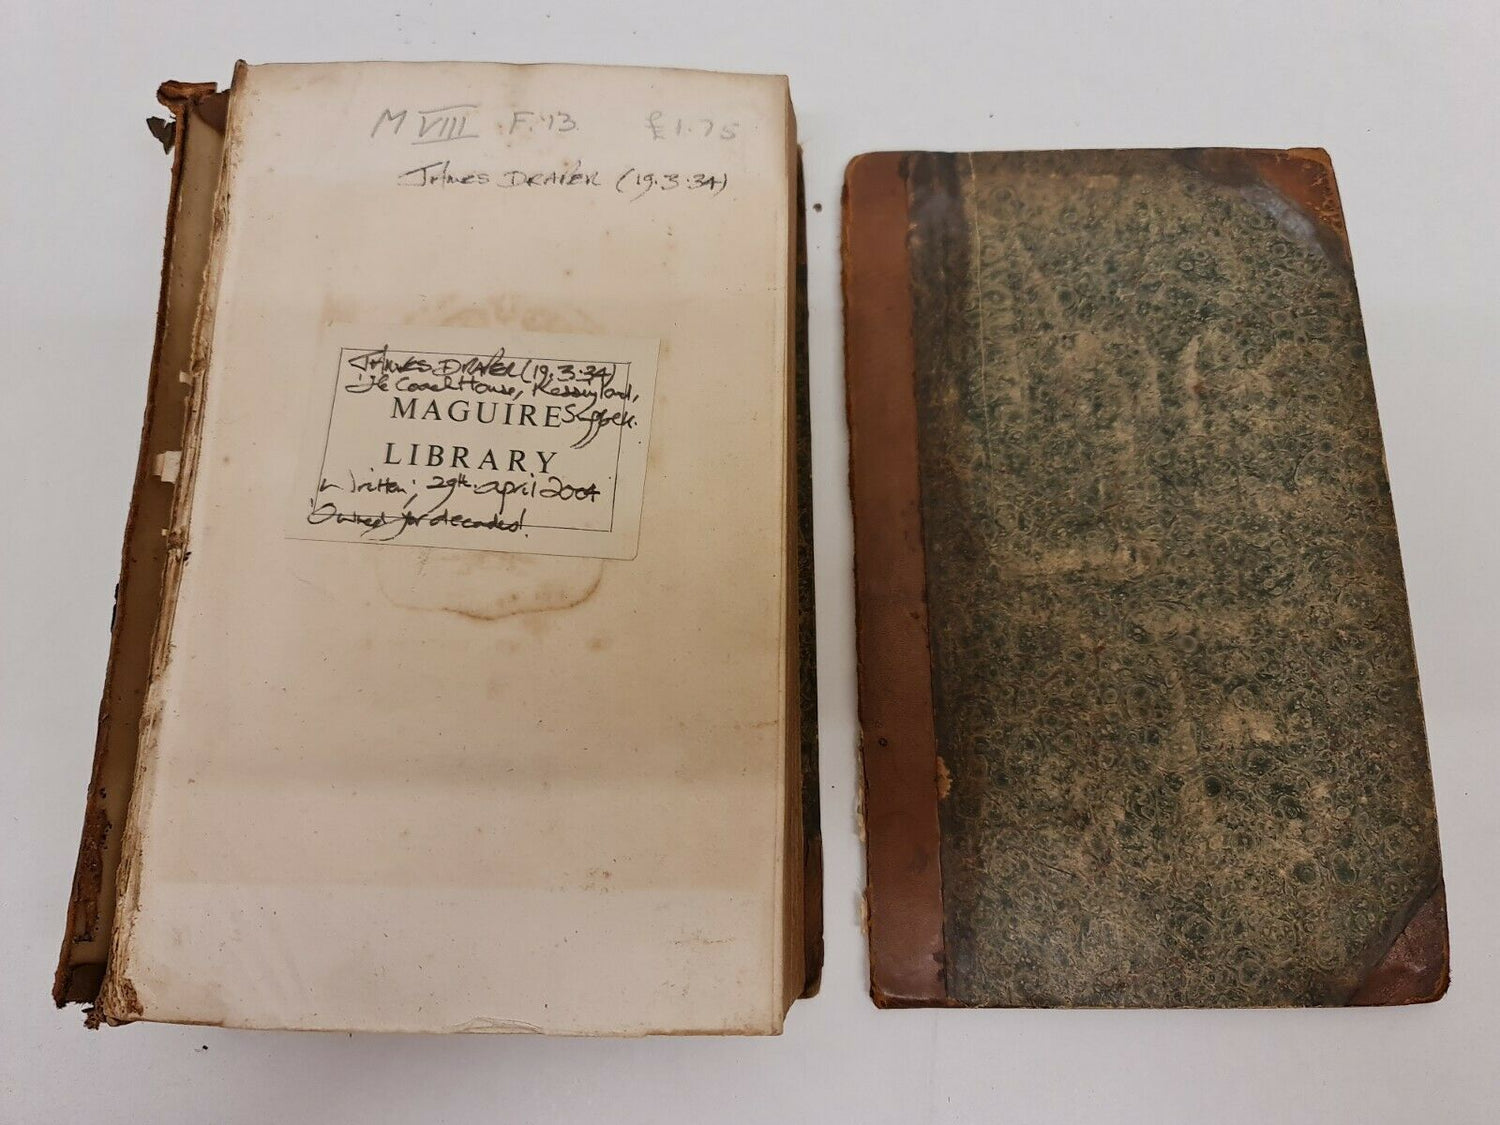 M VIII . F.'13. £1.75
JAMES DRAPER (19.3.34)
JAMES DRAPER (19.3.34)
The Coach House, Kessingland,
MAGUIRE Suffolk.
LIBRARY
Written; 29th. april 2004
Owned for decades!